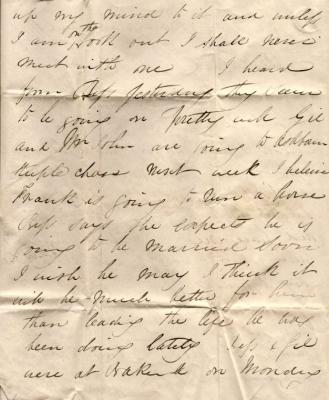 up my mind to it and unless
I am on the look out I shall never
meet with one I heard
from Bess Yesterday they seem
to be going on pretty well Gil
and Mr John are going to
steeple chase next week I believe
Frank is going to run a horse
Bess says she expects he is
going to be married soon
I wish he may I think it
will be much better for him
than leading the life he has
been doing lately Bess & Gil
were at on Monday